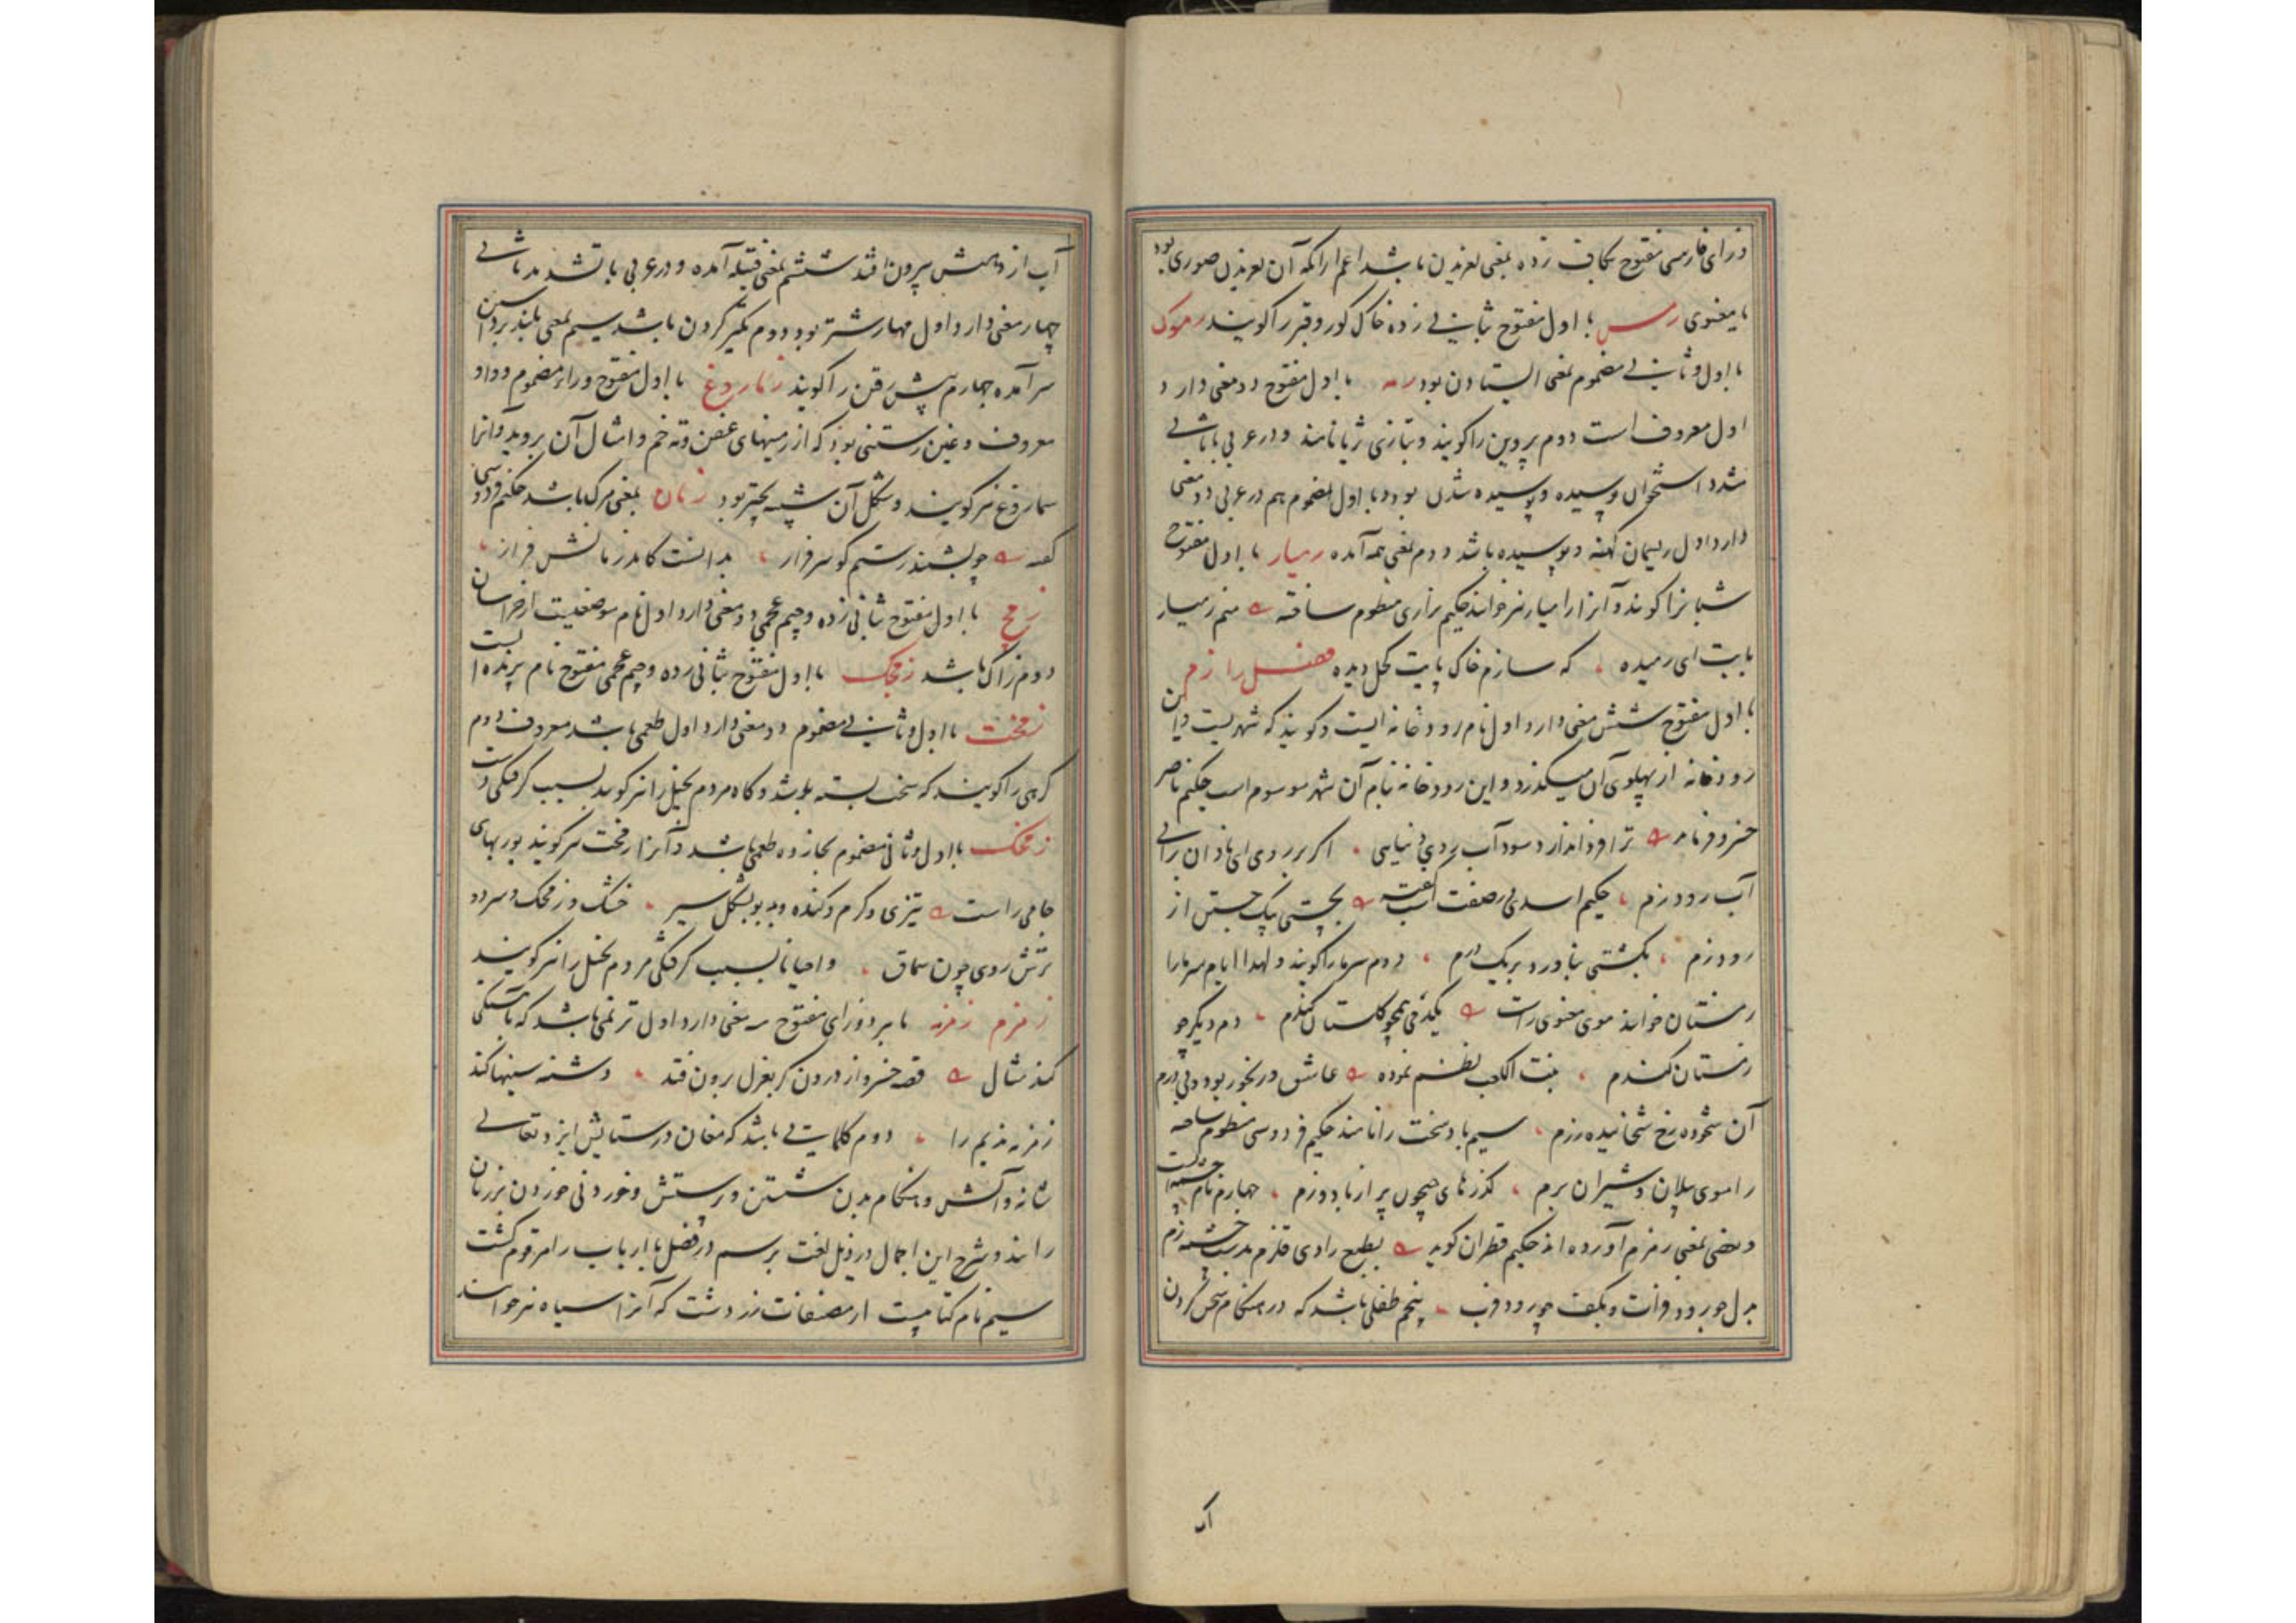 وزای فارسی مفتوح بکاف زده بمعنی لغزیدن باشد اعم ازانکه آن لغزیدن صوری بود
یا معنوی رمس با اول مفتوح بثانی زده خاک گور و قبر را گویند رموک
با اول و ثانی مضموم بمعنی ایستادن بود رمه با اول مفتوح دو معنی دارد
اول معروف است دوم پروین را گویند و بتازی ثریا نامند و در عربی با ثانی
مشدد استخوان پوسیده و پوسیده شدن بود و با اول مضموم هم در عربی دو معنی
دارد اول ریسمان کهنه و پوسیده باشد دوم بمعنی همه آمده رمیار با اول مفتوح
شبانرا گویند و آنرا رامیار نیز خوانند حکیم نزاری منظوم ساخته منم رمیار
بابت ای رمیده که سازم خاک پایت کحل دیده فصل زا زم
با اول مفتوح شش معنی دارد اول نام رودخانه ایست و گویند که شهریست و این
رودخانه از پهلوی آن میگذرد و این رودخانه بنام آن شهر موسوم است حکیم ناصر
خسرو فرماید ترا فردا ندارد سود آب روی دنیایی اگر بر روی ای نادان برانی
آب رود زم حکیم اسدی در صفت اسب گفت بجستی بیک جستن از
رود زم بگشتی بناورد بر یک درم دوم سرما را گویند و لهذا ایام سرما را
زمستان خوانند مولوی معنوی راست یکدمی همچو گلستان کندم دم دیگر چو
زمستان کندم بنت الکعب نظم نموده عاشق رنجور بود و بی درم
آن شخوده رخ شخانیده زرم سیم باد سخت را نامند حکیم فردوسی منظوم ساخته
را سوی پیلان و شیران برم گذرهای جیحون پر از باد و زم چهارم نام چشمه است
و بعضی بمعنی زمزم آورده اند حکیم قطران گوید بطبع رادی قلزم بدست چشمه زم
بدل چو رود فرات و بکف چو رود فرب پنجم طفلی باشد که در هنگام سخن کردن
آب
آب از دهنش بیرون افتد ششم بمعنی قبیله آمده و در عربی با تشدید ثانی
چهار معنی دارد اول مهار شتر بود دوم تکبر کردن باشد سیم بمعنی بلند برداشتن
سر آمده چهارم پیش رفتن را گویند زماروغ با اول مفتوح و راء مضموم و واو
معروف و غین رستنی بود که از زمینهای عفن و ته خم و امثال آن بروید و آنرا
سماروغ نیز گویند و شکل آن شبیه بچتر بود زمان بمعنی مرگ باشد حکیم فردوسی
گفته چو بشنید رستم گو سرفراز بدانست کامد زمانش فراز
زمچ با اول مفتوح بثانی زده و جیم عجمی دو معنی دارد اول نام موضعیست از خراسان
دوم زاک باشد زمچک با اول مفتوح بثانی زده و جیم عجمی مفتوح نام پرنده ایست
زمخت با اول و ثانی مضموم دو معنی دارد اول طعمی باشد معروف دوم
گرهی را گویند که سخت بسته باشد و گاه مردم بخیل را نیز گویند بسبب گرفتگی دست
زمخک با اول و ثانی مضموم بخا زده طعمی باشد و آنرا زمخت نیز گویند پوربهای
جامی راست تیزی و گرم و گنده و بد بو بشکل سیر خشک و زمخک و سرد و
ترش روی چون سماق و احیانا بسبب گرفتگی مردم بخیل را نیز گویند
زمزم زمزمه با هر دو زای مفتوح سه معنی دارد اول ترنمی باشد که بآهستگی
کنند مثال قصه خسرو از درون گر بغزل برون فتد دشنه سینها کند
زمزمه ندیم را دوم کلماتی باشد که مغان در ستایش ایزد تعالی
شانه و آتش و هنگام بدن شستن و پرستش و خوردنی خوردن بر زبان
رانند و شرح این اجمال در ذیل لغت برسم در فصل با از باب را مرقوم گشت
سیم نام کتابیست از مصنفات زردشت که آنرا سیاه نیز خوانند